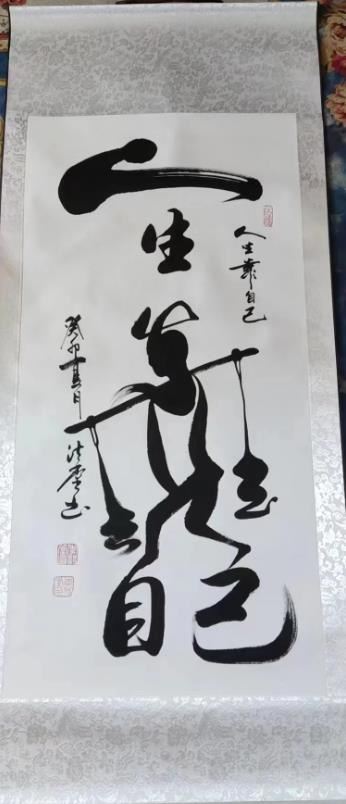 人生靠自己
人
生
靠
自己
癸卯夏月
书